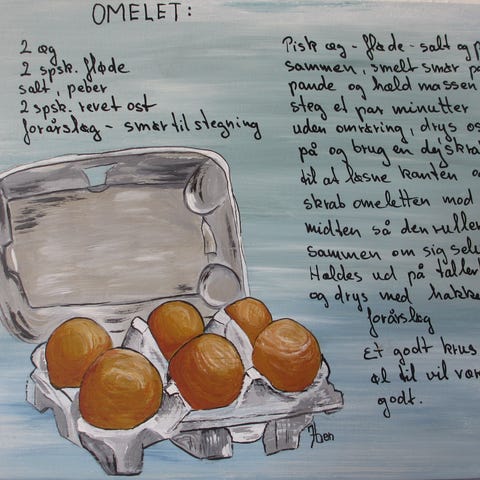 OMELET:
2 æg
2 spsk. fløde
salt, peber
2 spsk. revet ost
forårsløg - smør til stegning
Pisk æg - fløde - salt og p
sammen, smelt smør på
pande og hæld massen
steg et par minutter
uden omrøring, drys os
på og brug en dejskrab
til at løsne kanten o
skrab omeletten mod
midten så den ruller
sammen om sig selv
Hældes ud på taller
og drys med hakke
forårsløg
Et godt krus
øl til vil vær
godt.